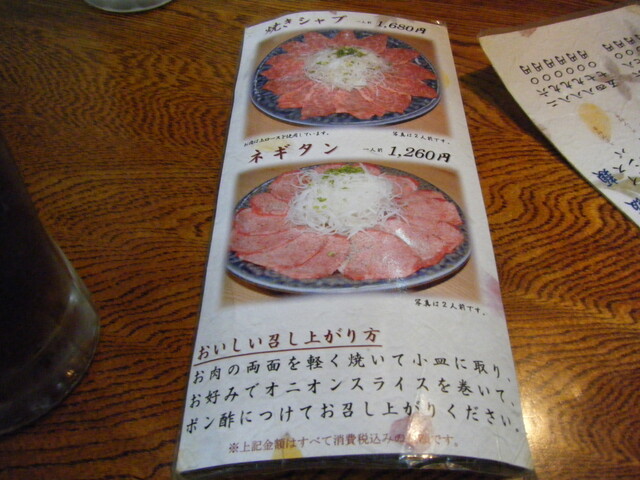 焼きシャブ 一人前 1,680円
写真は2人前です。
ネギタン 一人前 1,260円
写真は2人前です。
おいしい召し上がり方
お肉の両面を軽く焼いて小皿に取り、
お好みでオニオンスライスを巻いて、
ポン酢につけてお召し上がりください。
※上記金額はすべて消費税込みの です。